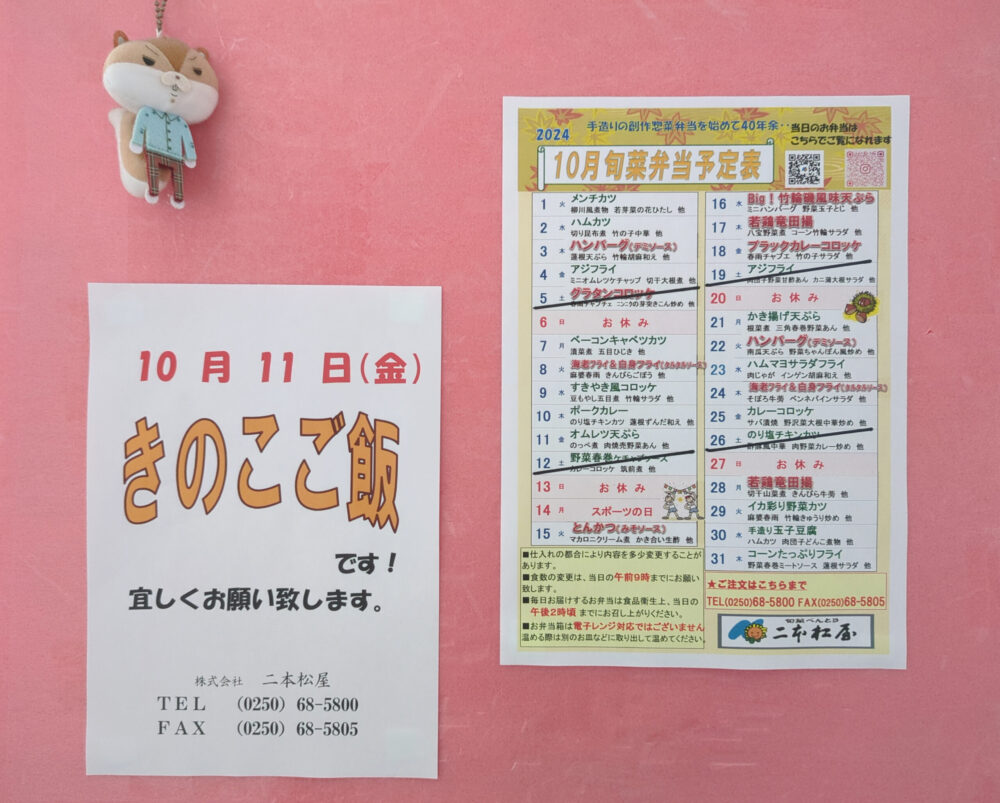 10 月 11 日(金)
きのこご飯
です!
宜しくお願い致します。
株式会社 二本松屋
TEL (0250) 68-5800
FAX (0250) 68-5805
2024
手造りの創作惣菜弁当を始めて40年余‥
当日のお弁当は
こちらでご覧になれます
10月旬菜弁当予定表
1 火 メンチカツ
柳川風煮物 若芽菜の花ひたし 他
2 水 ハムカツ
切り昆布煮 竹の子中華 他
3 木 ハンバーグ(デミソース)
蓮根天ぷら 竹輪胡麻和え 他
4 金 アジフライ
ミニオムレツケチャップ 切干大根煮 他
5 土 グラタンコロッケ
春雨チャプチェ ニンニクの芽突きこん炒め 他
6 日 お休み
7 月 ベーコンキャベツカツ
漬菜煮 五目ひじき 他
8 火 海老フライ&白身フライ(タルタルソース)
麻婆春雨 きんぴらごぼう 他
9 水 すきやき風コロッケ
豆もやし五目煮 竹輪サラダ 他
10 木 ポークカレー
のり塩チキンカツ 蓮根ずんだ和え 他
11 金 オムレツ天ぷら
のっぺ煮 肉焼売野菜あん 他
12 土 野菜春巻ケチャップソース
カレーコロッケ 筑前煮 他
13 日 お休み
14 月 スポーツの日
15 火 とんかつ(みそソース)
マカロニクリーム煮 かき合い生酢 他
■仕入れの都合により内容を多少変更することが
あります。
■食数の変更は、当日の午前9時までにお願い
致します。
■毎日お届けするお弁当は食品衛生上、当日の
午後2時頃 までにお召し上がりください。
■お弁当箱は電子レンジ対応ではございません
温める際は別のお皿などに取り出して温めてください。
16 水 Big!竹輪磯風味天ぷら
ミニハンバーグ 野菜玉子とじ 他
17 木 若鶏竜田揚
八宝野菜煮 コーン竹輪サラダ 他
18 金 ブラックカレーコロッケ
春雨チャプチェ 竹の子サラダ 他
19 土 アジフライ
肉団子野菜甘酢あん カニ蒲大根サラダ 他
20 日 お休み
21 月 かき揚げ天ぷら
根菜煮 三角春巻野菜あん 他
22 火 ハンバーグ(デミソース)
南瓜天ぷら 野菜ちゃんぽん風炒め 他
23 水 ハムマヨサラダフライ
肉じゃが インゲン胡麻和え 他
24 木 海老フライ&白身フライ(タルタルソース)
そぼろ牛蒡 ペンネバインサラダ 他
25 金 カレーコロッケ
サバ漬焼 野沢菜大根中華炒め 他
26 土 のり塩チキンカツ
酢豚風中華 肉野菜カレー炒め 他
27 日 お休み
28 月 若鶏竜田揚
切干山菜煮 きんぴら牛蒡 他
29 火 イカ彩り野菜カツ
麻婆春雨 竹輪きゅうり炒め 他
30 水 手造り玉子豆腐
ハムカツ 肉団子どんこ煮物 他
31 木 コーンたっぷりフライ
野菜春巻ミートソース 蓮根サラダ 他
★ご注文はこちらまで
TEL(0250)68-5800 FAX(0250)68-5805
旬菜べんとう
二本松屋